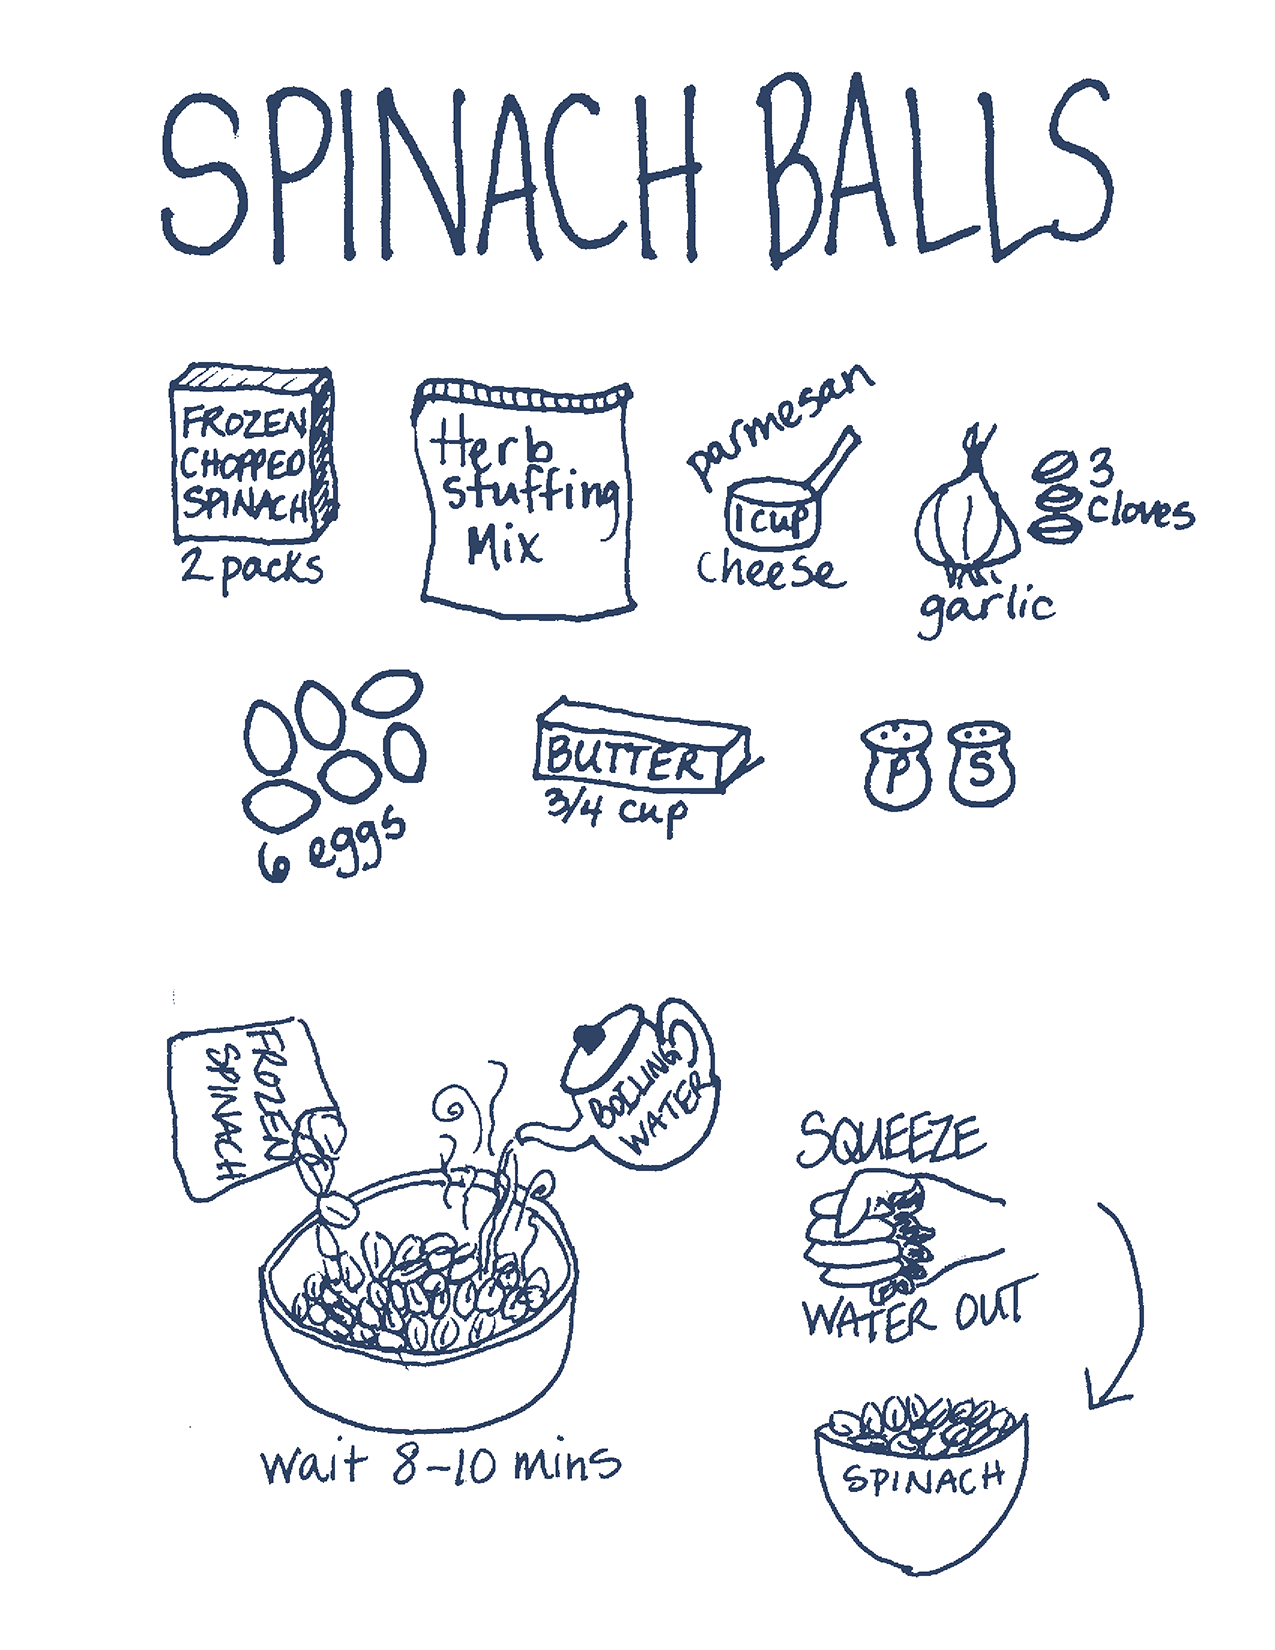 SPINACH BALLS
FROZEN
CHOPPED
SPINACH
2 packs
Herb
stuffing
Mix
parmesan
1 cup
cheese
3
cloves
garlic
6 eggs
BUTTER
3/4 cup
P
S
FROZEN
SPINACH
BOILING
WATER
wait 8-10 mins
SQUEEZE
WATER OUT
SPINACH